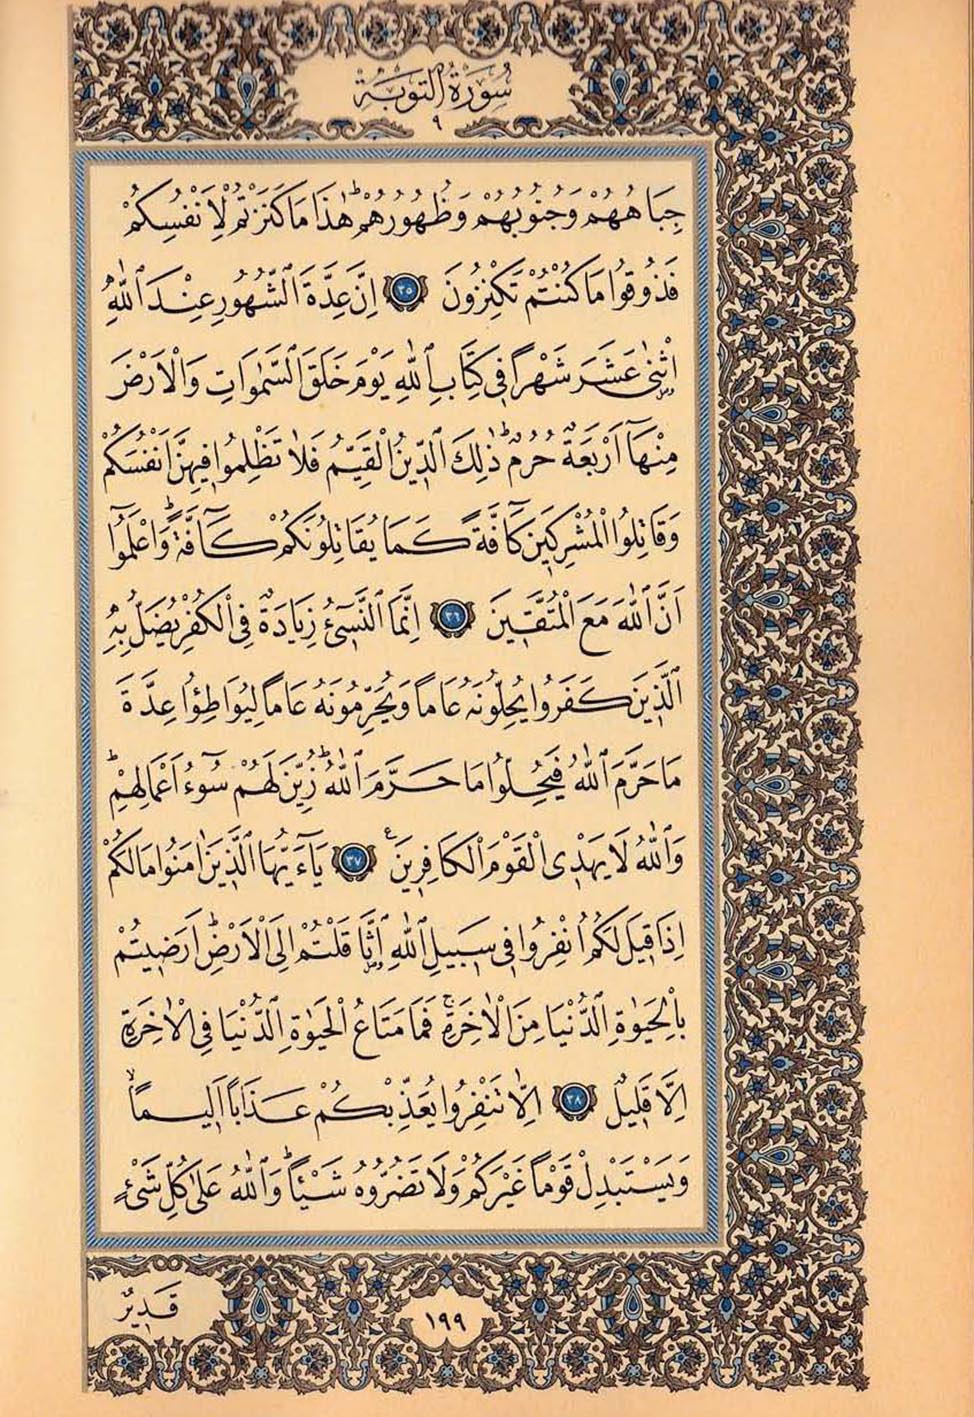 سُورَةُ التَّوبَة
٩
جِبَاهُهُمْ وَجُنُوبُهُمْ وَظُهُورُهُمْ ۜ هٰذَا مَا كَنَزْتُمْ لِاَنْفُسِكُمْ
فَذُوقُوا مَا كُنْتُمْ تَكْنِزُونَ ٣٥ اِنَّ عِدَّةَ الشُّهُورِ عِنْدَ اللّٰهِ
اثْنٰى عَشَرَ شَهْرًا فٖي كِتَابِ اللّٰهِ يَوْمَ خَلَقَ السَّمٰوَاتِ وَالْاَرْضَ
مِنْهَٓا اَرْبَعَةٌ حُرُمٌ ۜ ذٰلِكَ الدّٖينُ الْقَيِّمُ فَلَا تَظْلِمُوا فٖيهِنَّ اَنْفُسَكُمْ
وَقَاتِلُوا الْمُشْرِكٖينَ كَٓافَّةً كَمَا يُقَاتِلُونَكُمْ كَٓافَّةً ۜ وَاعْلَمُٓوا
اَنَّ اللّٰهَ مَعَ الْمُتَّقٖينَ ٣٦ اِنَّمَا النَّسٖٓيءُ زِيَادَةٌ فِي الْكُفْرِ يُضَلُّ بِهِ
الَّذٖينَ كَفَرُوا يُحِلُّونَهُ عَامًا وَيُحَرِّمُونَهُ عَامًا لِيُوَاطِؤُ۫ا عِدَّةَ
مَا حَرَّمَ اللّٰهُ فَيُحِلُّوا مَا حَرَّمَ اللّٰهُ ۜ زُيِّنَ لَهُمْ سُٓوءُ اَعْمَالِهِمْ ۜ
وَاللّٰهُ لَا يَهْدِي الْقَوْمَ الْكَافِرٖينَ ع ٣٧ يَٓا اَيُّهَا الَّذٖينَ اٰمَنُوا مَا لَكُمْ
اِذَا قٖيلَ لَكُمُ انْفِرُوا فٖي سَبٖيلِ اللّٰهِ اثَّاقَلْتُمْ اِلَى الْاَرْضِ ۜ اَرَضٖيتُمْ
بِالْحَيٰوةِ الدُّنْيَا مِنَ الْاٰخِرَةِ ۚ فَمَا مَتَاعُ الْحَيٰوةِ الدُّنْيَا فِي الْاٰخِرَةِ
اِلَّا قَلٖيلٌ ٣٨ اِلَّا تَنْفِرُوا يُعَذِّبْكُمْ عَذَابًا اَلٖيمًاۙ
وَيَسْتَبْدِلْ قَوْمًا غَيْرَكُمْ وَلَا تَضُرُّوهُ شَيْـًٔا ۜ وَاللّٰهُ عَلٰى كُلِّ شَيْءٍ
قَدٖيرٌ
١٩٩